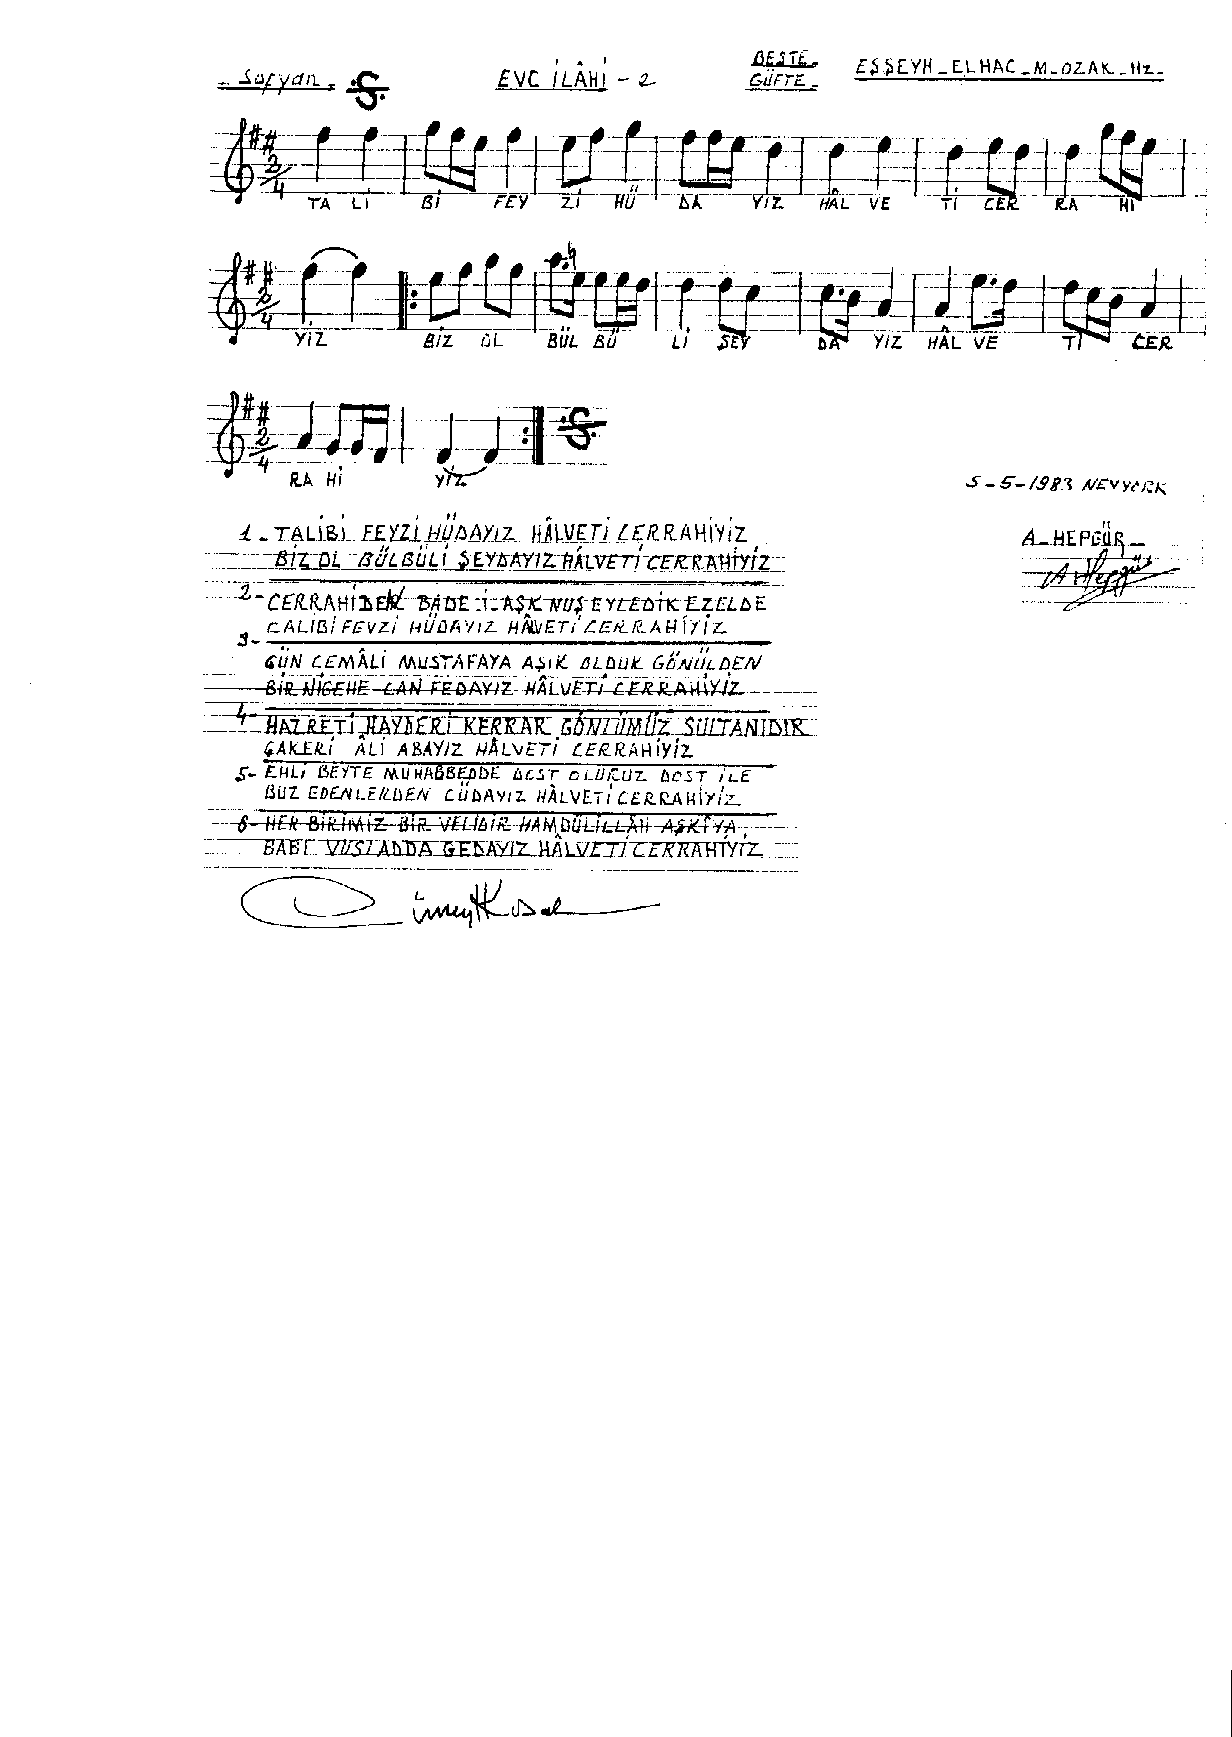 Sofyan EVC İLÂHİ - 2 BESTE - GÜFTE - EŞŞEYH - ELHAC - M - OZAK - Hz -
2/4
TA Lİ Bİ FEY Zİ HÜ DA YIZ HÂL VE Tİ CER RA Hİ
2/4
YİZ BİZ OL BÜL BÜ Lİ ŞEY DA YIZ HÂL VE Tİ CER
2/4
RA Hİ YİZ
5-5-1983 NEVYORK
A-HEPGÜR-
1- TALİBİ FEYZİ HÜDAYIZ HÂLVETİ CERRAHİYİZ
BİZ OL BÜLBÜLİ ŞEYDAYIZ HÂLVETİ CERRAHİYİZ
2- CERRAHİDEN BADE-İ-AŞK NUŞ EYLEDİK EZELDE
CALIBİ FEVZİ HÜDAYIZ HÂLVETİ CERRAHİYİZ
3-
GÜN CEMÂLİ MUSTAFAYA AŞIK OLDUK GÖNÜLDEN
BİR NİGEHE CAN FEDAYIZ HÂLVETİ CERRAHİYİZ
4- HAZRETİ HAYDERİ KERRAR GÖNLÜMÜZ SULTANIDIR
ÇAKERİ ÂLİ ABAYIZ HÂLVETİ CERRAHİYİZ
5- EHLİ BEYTE MUHABBEDDE DOST OLURUZ DOST İLE
BUZ EDENLERDEN CÜDAYIZ HÂLVETİ CERRAHİYİZ
6- HER BİRİMİZ BİR VELİDİR HAMDÜLİLLÂH AŞKİYA
BABI VUSLADDA GEDAYIZ HÂLVETİ CERRAHİYİZ